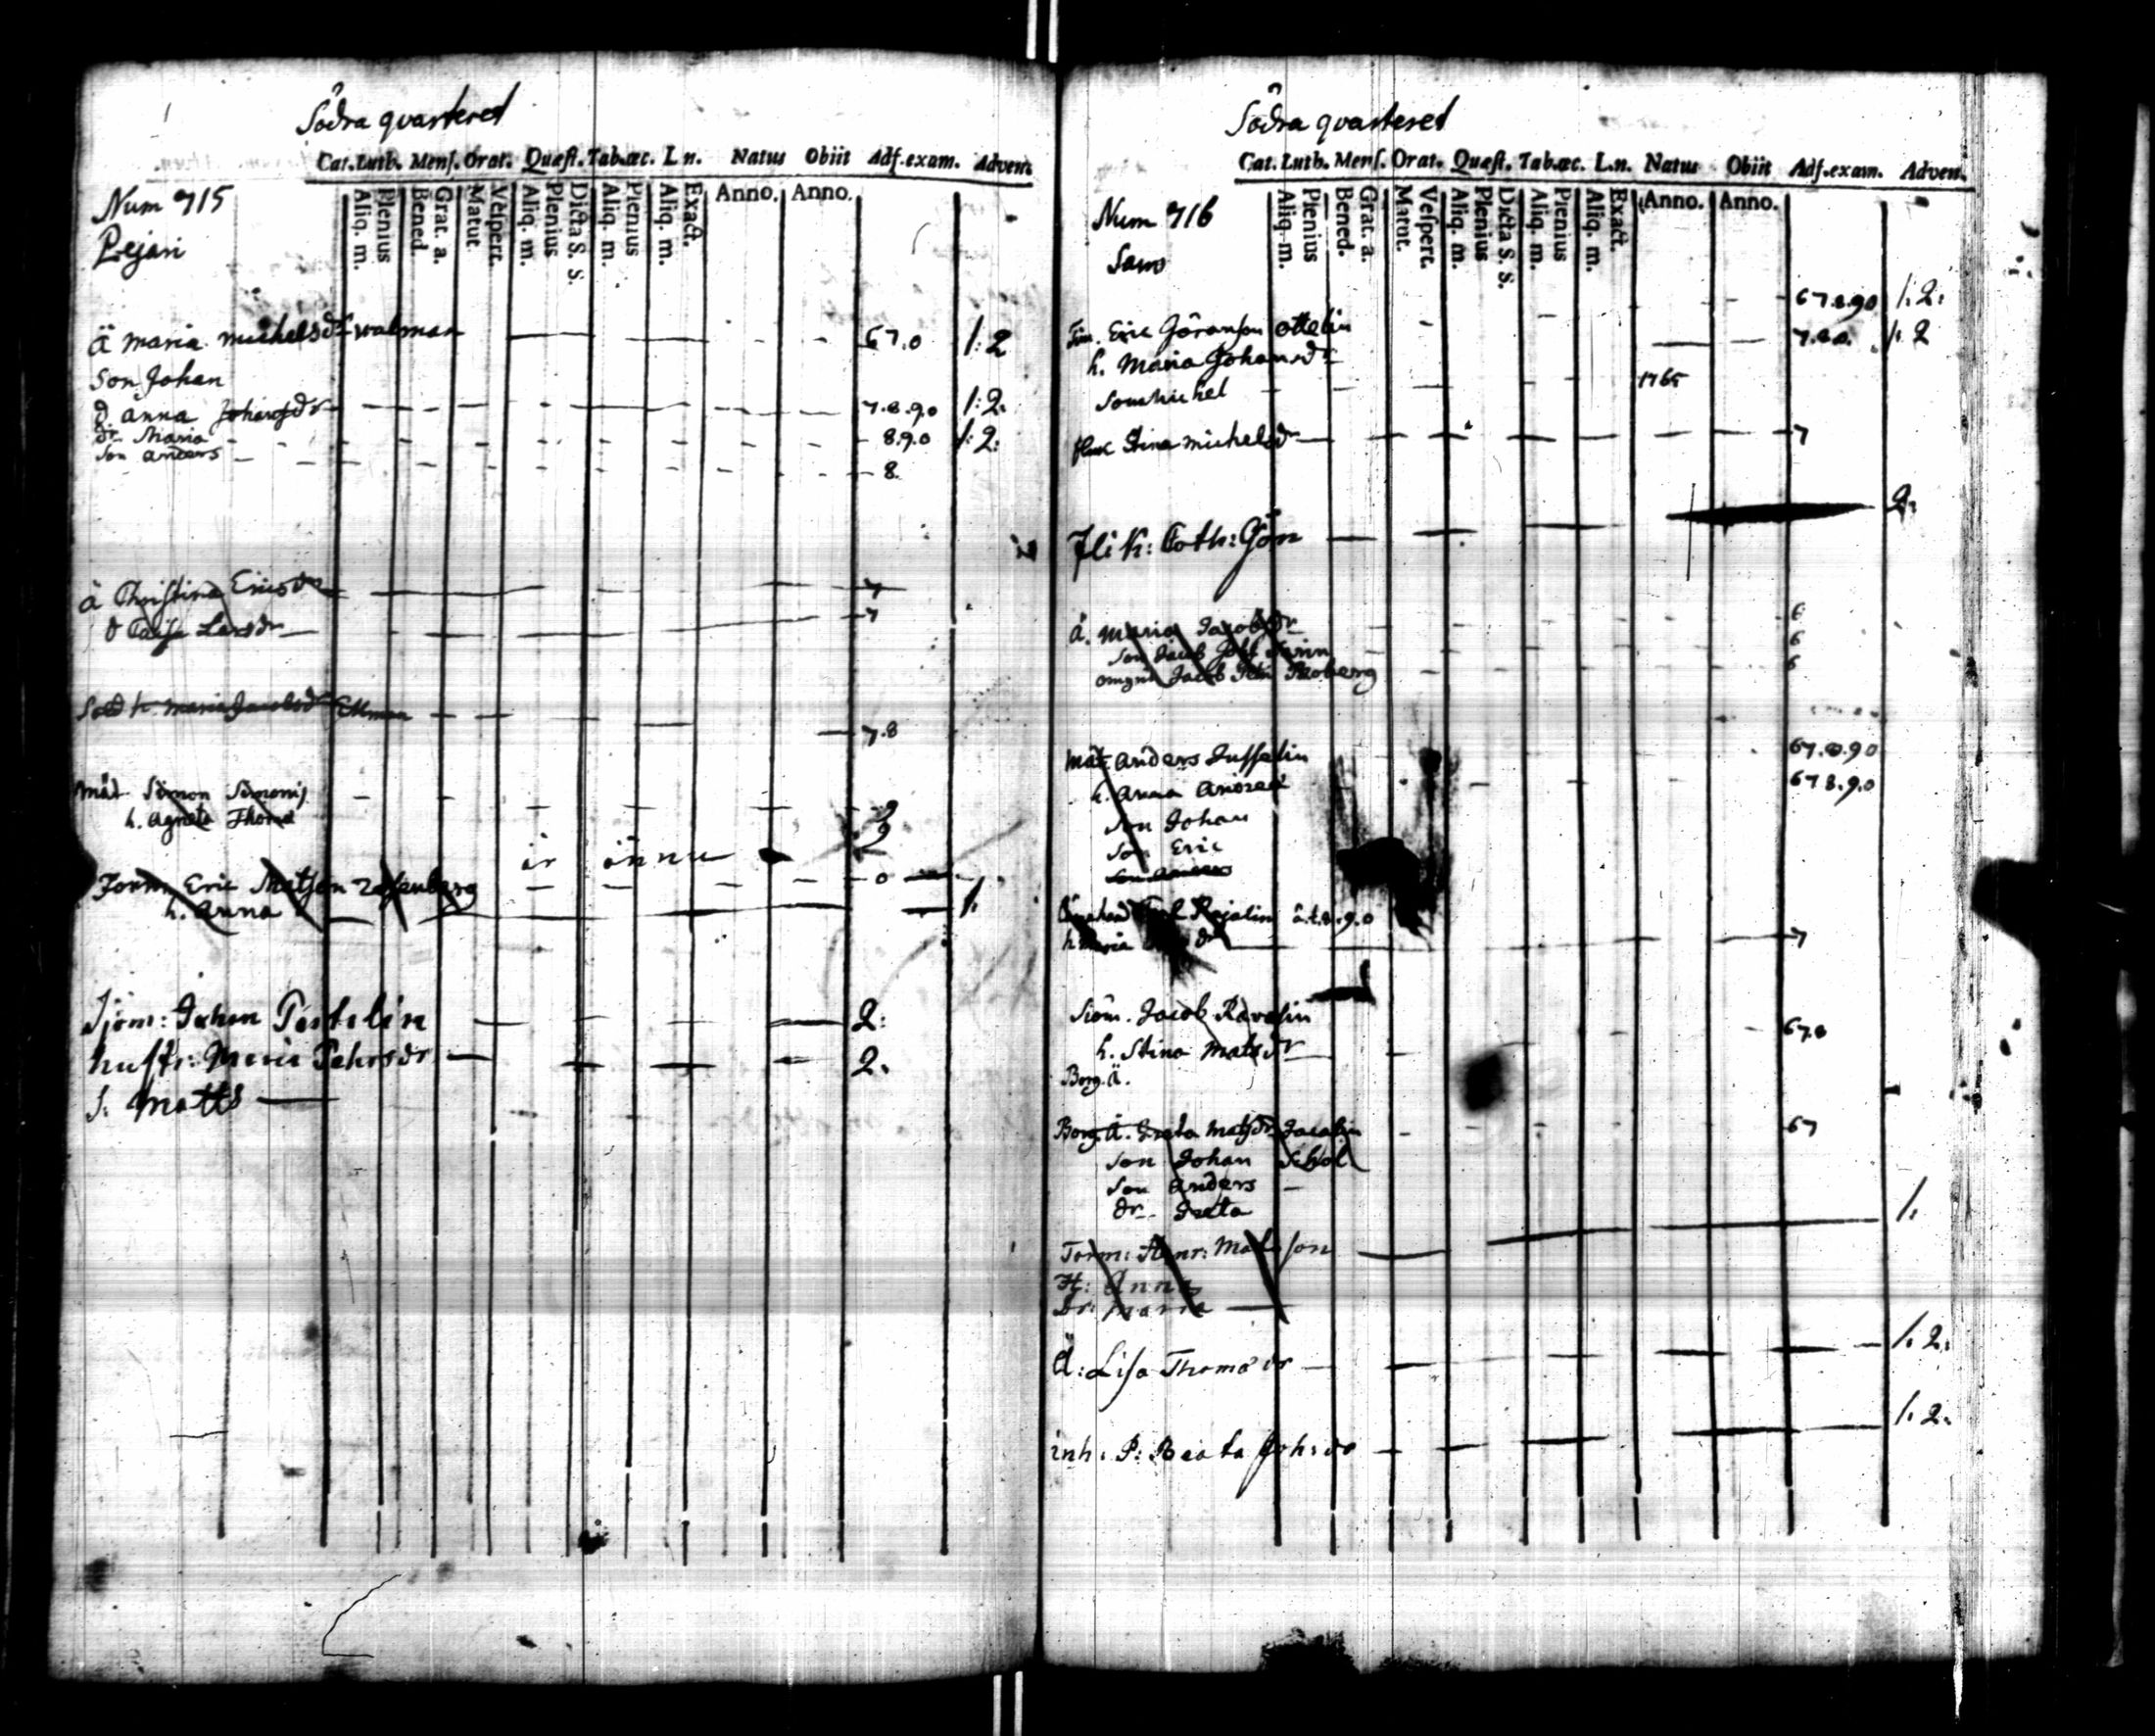 Södra qvarteret
Cat. Luth. Menſ. Orat. Quæſt. Tab. œc. L n. Natus Obiit Adſ. exam. Adven.
Aliq. m. Plenius Bened. Grat. a. Matut. Veſpert. Aliq. m. Plenius Dicta S. S. Aliq. m. Plenius Aliq. m. Exact. Anno. Anno.
Num 715
Pejari
Ä maria michelsdr walman 67.0 1:2
Son Johan
d anna Johansdr 7.8.9.0 1:2.
dr Maria 8.9.0 1:2:
Son anders 8.
ä Christina Ericsdr 7
d Caisa Larsdr 7
Sold h. maria Jacobsdr Ekman 7.8
Mät Simon Simonis 9
h. Agneta Thomæ 9
är ännu
Torm Eric Matsson 0
h. Anna 1.
Sjöm: Johan Tastelin 2:
hustr: Maria Pehrsdr 2.
S. Matts
Södra qvarteret
Cat. Luth. Menſ. Orat. Quæſt. Tab. œc. L.n. Natus Obiit Adſ. exam. Adven.
Aliq. m. Plenius Bened. Grat. a. Matut. Veſpert. Aliq. m. Plenius Dicta S. S. Aliq. m. Plenius Aliq. m. Exact. Anno. Anno.
Num 716
Samo
67.8.90 1:2:
Tim. Eric Göransson ottelin 7.8.0. 1:2
h. Maria Johansdr
Son Michel 1765
Stina michelsdr 7
Flik: Cath: Gön 2:
ä. Maria Jacobsdr 6
Son Jacob 6
Jacob 6
Mät anders Jusselin 67.8.90
h. Anna Andreæ 678.9.0
Son Johan
Son Eric
Son Anders
Rajalin
h. Maria dr 7
Siöm. Jacob Ravalin
h. Stina Matsdr 678
Borg. ä.
Borg. ä. Greta Matsdr Jacobin 67
son Johan
son Anders
dr Greta
1.
Torm: Henr: Matsson
H: Anna
Dr: Maria
Ä: Lisa Thomædr 1. 2.
inh: P: Beata Joh:dr 1. 2.